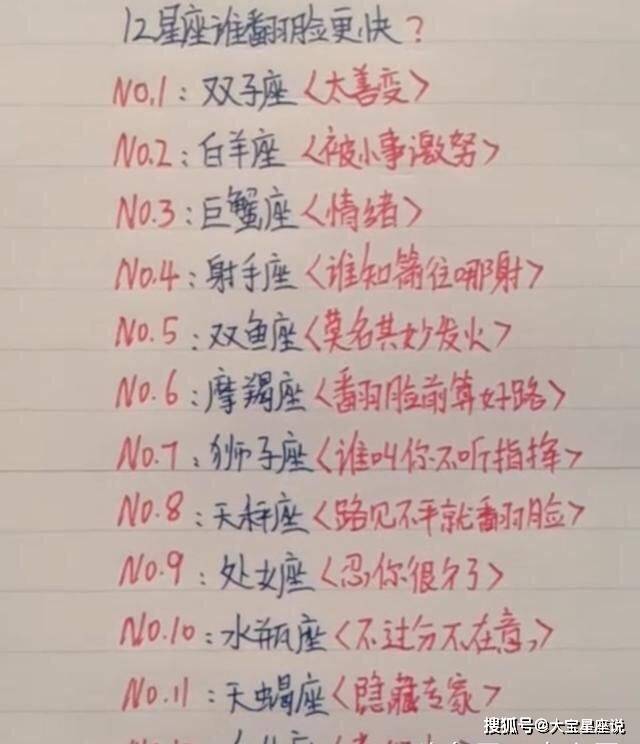 12星座谁翻脸更快？
NO.1：双子座〈太善变〉
NO.2：白羊座〈被小事激努〉
NO.3：巨蟹座〈情绪〉
NO.4：射手座〈谁知箭往哪射〉
NO.5：双鱼座〈莫名其妙发火〉
NO.6：摩羯座〈翻脸前算好路〉
NO.7：狮子座〈谁叫你不听指挥〉
NO.8：天秤座〈路见不平就翻脸〉
NO.9：处女座〈忍你很久了〉
NO.10：水瓶座〈不过分不在意，〉
NO.11：天蝎座〈隐藏专家〉
搜狐号@大宝星座说